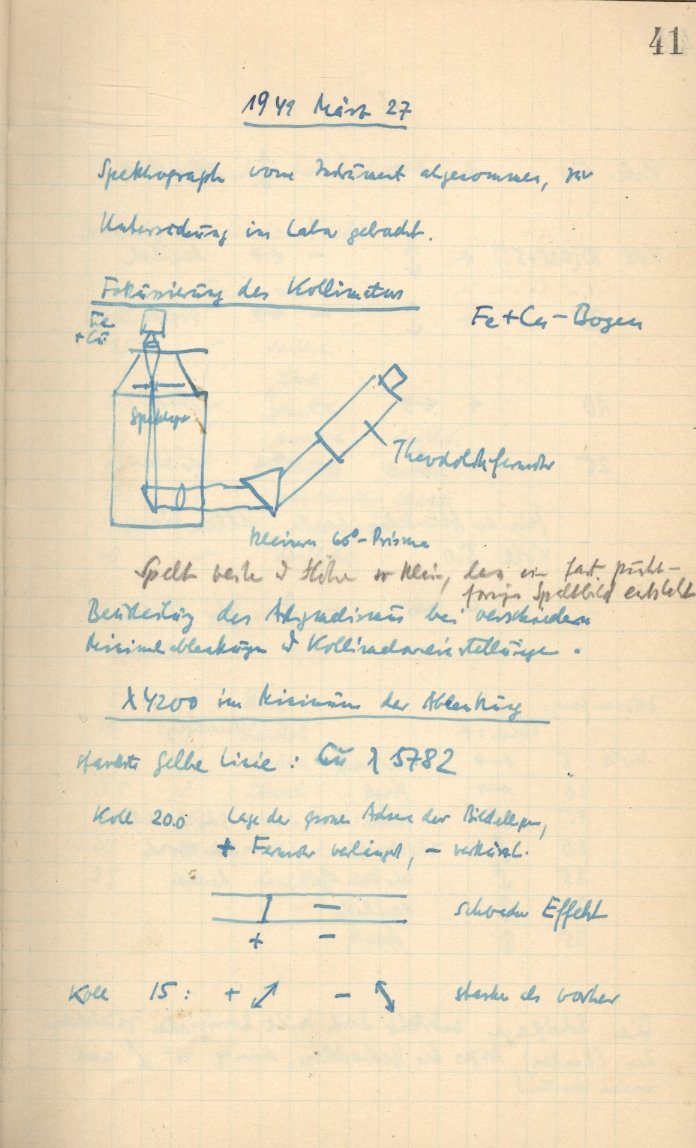 41
1949 März 27
Spektrograph vom Instrument abgenommen, zur
Untersuchung ins Labor gebracht.
Fokusierung des Kollimators
Fe + Cu - Bogen
Fe
+ Cu
Spektrgr
Theodolitfernrohr
kleines 60°-Prisma
Spaltweite & Höhe so klein, dass ein fast punkt-
förmiges Spaltbild entsteht
Beurteilung des Astigmatismus bei verschiedenen
Minimalablenkungen & Kollimatoreinstellungen.
λ4200 im Minimum der Ablenkung
stärkste gelbe Linie: Cu λ 5782
Koll 20.0 Lage der grossen Achse der Bildellipsen,
+ Fernrohr verlängert, - verkürzt.
schwacher Effekt
+ -
Koll 15: + ↗ - ↖ stärker als vorher